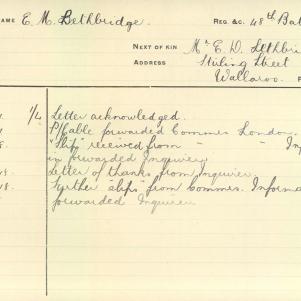 NAME E. M. Lethbridge. REG &C. 48th Bat
NEXT OF KIN Mr E. D. Lethbri
ADDRESS Stirling Street
Wallaroo.
1/4 Letter acknowledged.
P/Cable forwarded Commes London.
"Slip" received from " " In
forwarded Inquirer
Letter of thanks from Inquirer
18. Further "slips" from Commes. Informa
forwarded Inquirer